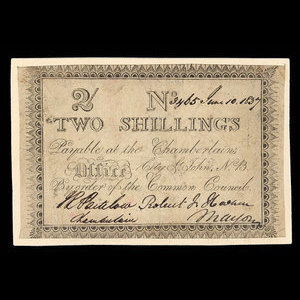 2/ No 3465 June 10. 1837
TWO SHILLINGS
Payable at the Chamberlains
Office City St. John, N.B.
By order of the Common Council
Robert
Chamberlain Mayor